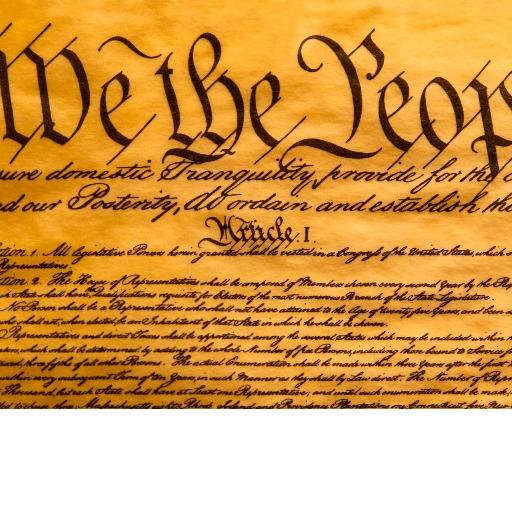 We the Peop
ure domestic Tranquility, provide for the c
d our Posterity, do ordain and establish thi
Article. I
ction. 1. All legislative Powers herein granted shall be vested in a Congress of the United States, which s
Representatives.
ction. 2. The House of Representatives shall be composed of Members chosen every second Year by the Peop
ch State shall have the Qualifications requisite for Electors of the most numerous Branch of the State Legislature.
No Person shall be a Representative who shall not have attained to the Age of twenty five Years, and been s
who shall not, when elected, be an Inhabitant of that State in which he shall be chosen.
Representatives and direct Taxes shall be apportioned among the several States which may be included within t
which shall be determined by adding to the whole Number of free Persons, including those bound to Service fo
, three fifths of all other Persons. The actual Enumeration shall be made within three Years after the first M
within every subsequent Term of ten Years, in such Manner as they shall by Law direct. The Number of Repre
Thousand, but each State shall have at Least one Representative; and until such enumeration shall be made, t
to chuse three, Massachusetts Rhode Island and Providence Plantations one, Connecticut five, New